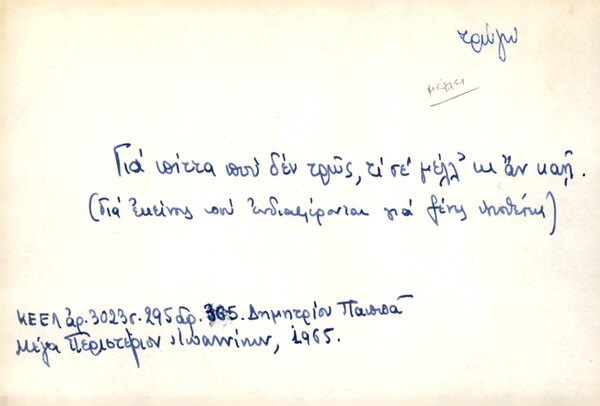 τρώγω
μέλει
Γιά πίττα πού δέν τρῶς, τί σέ μέλλ' κι ἄν καῇ.
(διά ἐκείνους πού ἐνδιαφέρονται γιά ξένες ὑποθέσεις)
ΚΕΕΛ ἀρ. 3023 σ. 295 Δημητρίου Παππᾶ
Μέγα Περιστέριον Ἰωαννίνων, 1965.